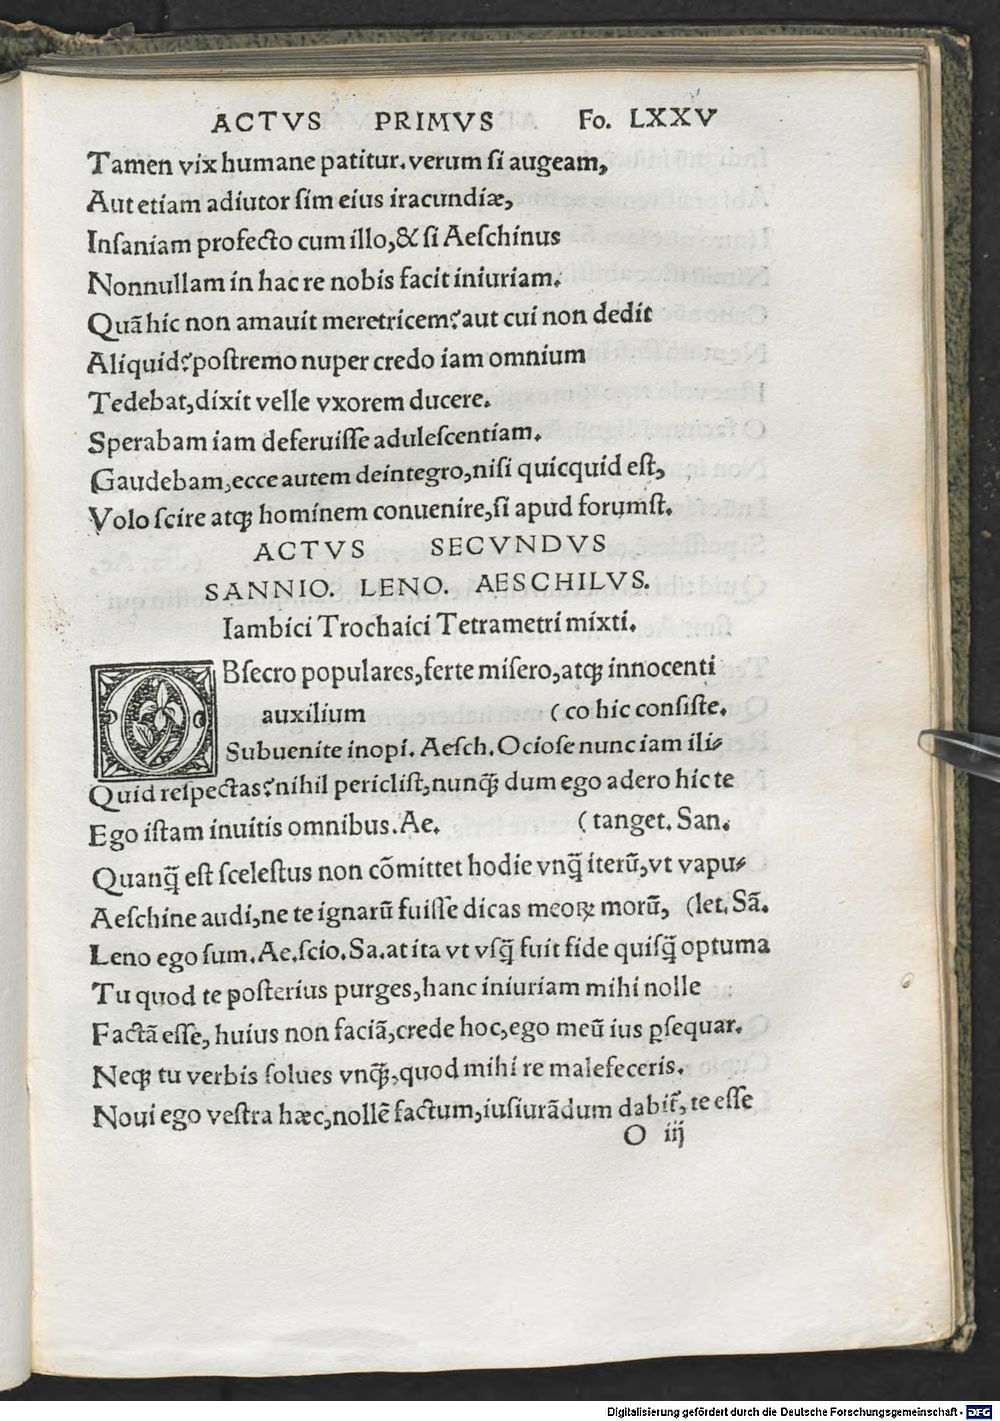 ACTVS PRIMVS Fo. LXXV
Tamen vix humane patitur. verum ſi augeam,
Aut etiam adiutor ſim eius iracundiæ,
Inſaniam profecto cum illo, & ſi Aeſchinus
Nonnullam in hac re nobis facit iniuriam.
Quā hic non amauit meretricem? aut cui non dedit
Aliquid? poſtremo nuper credo iam omnium
Tedebat, dixit velle vxorem ducere.
Sperabam iam deferuiſſe aduleſcentiam.
Gaudebam, ecce autem deintegro, niſi quicquid eſt,
Volo ſcire atqꝫ hominem conuenire, ſi apud forumſt.
ACTVS SECVNDVS
SANNIO. LENO. AESCHILVS.
Iambici Trochaici Tetrametri mixti.
OBſecro populares, ferte miſero, atqꝫ innocenti
auxilium (co hic conſiſte.
Subuenite inopi. Aeſch. Ocioſe nunc iam ili-
Quid reſpectas? nihil pericliſt, nunꝙ̄ dum ego adero hic te
Ego iſtam inuitis omnibus. Ae. (tanget. San.
Quanq̄ eſt ſceleſtus non cōmittet hodie vnq̄ iterū, vt vapu-
Aeſchine audi, ne te ignarū fuiſſe dicas meoꝝ morū, (let. Sā.
Leno ego ſum. Ae. ſcio. Sa. at ita vt vſq̄ fuit fide quiſq̄ optuma
Tu quod te poſterius purges, hanc iniuriam mihi nolle
Factā eſſe, huius non faciā, crede hoc, ego meū ius ꝑſequar.
Neqꝫ tu verbis ſolues vnꝙ̄, quod mihi re malefeceris.
Noui ego veſtra hæc, nollē factum, iuſiurādum dabit̄, te eſſe
O iij
Digitalisierung gefördert durch die Deutsche Forschungsgemeinschaft - DFG